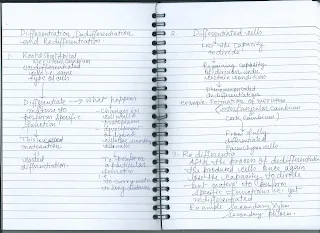 Differentiation, Dedifferentiation
and Redifferentiation
1. Root & shoot apical
meristem, cambium
undifferentiated
cells i.e. same
type of cells
Differentiate → What happens
mature to
perform specific
function
- Changes in
cell wall &
protoplasm
This is called
maturation
called
differentiation
- To perform
a particular
function
to carry water
to long distance
2. Differentiated cells
Loss the capacity
to divide
Regaining capacity
of division under
certain condition
Phenomenon
dedifferentiation
example formation of meristem
(interfascicular cambium
Cork cambium)
From fully
differentiated
Parenchyma cells
3. Redifferentia
After the process of dedifferentiation
the produced cells once again
lose the capacity to divide
but mature to perform
specific functions i.e. get
redifferentiated
Example Secondary xylem
Secondary phloem